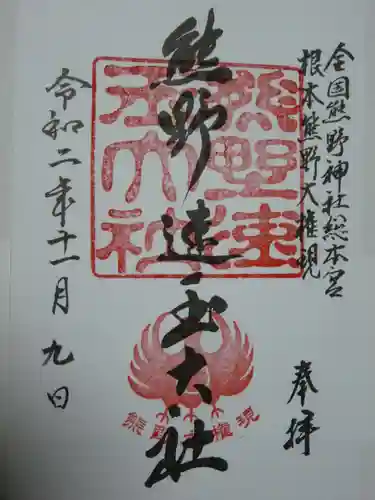 全国熊野神社総本宮
根本熊野大権現
奉拝
熊野速玉大社
熊野速玉大社
熊野大権現
令和二年十一月九日